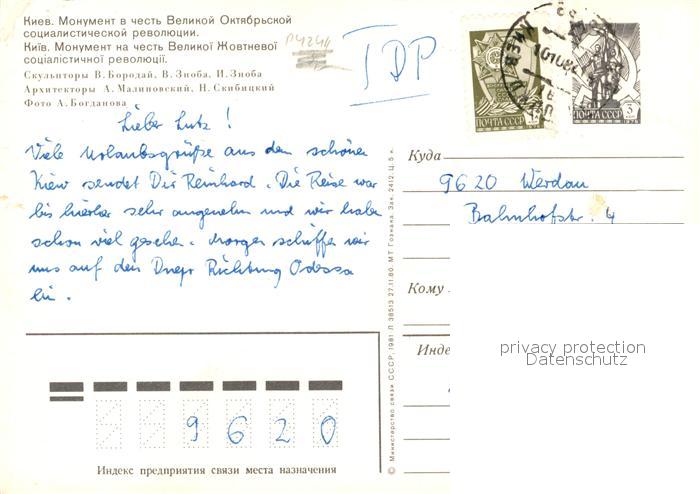 Киев. Монумент в честь Великой Октябрьской
социалистической революции.
Київ. Монумент на честь Великої Жовтневої
соціалістичної революції.
Скульпторы В. Бородай, В. Зноба, И. Зноба
Архитекторы А. Малиновский, Н. Скибицкий
Фото А. Богданова
P4241
TDP
ПОЧТА СССР
ПОЧТА СССР
3
Lieber Lutz!
Viele Urlaubsgrüße aus dem schönen
Kiew sendet Dir Reinhard. Die Reise war
bis hierher sehr angenehm und wir haben
schon viel gesehen. Morgen schiffen wir
uns auf den Dnepr Richtung Odessa
ein.
Куда
9620 Werdau
Bahnhofstr. 4
Кому
Инде
privacy protection
Datenschutz
9620
Индекс предприятия связи места назначения
© Министерство связи СССР, 1981 Л 38513 27.11.80. МТ Гознака. Зак. 2412. Ц. 5 к.